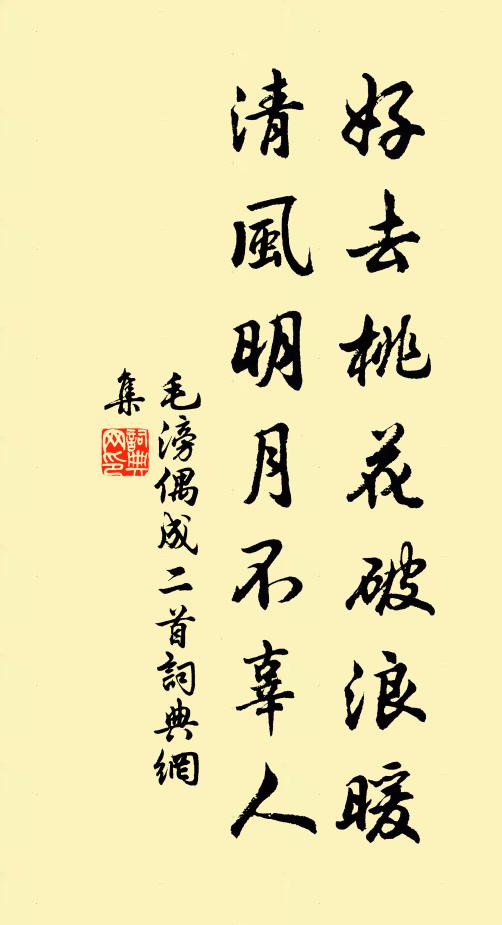 好去桃花破浪暖
清風明月不辜人
毛滂偶成二首詞典網
集
詞典
网印